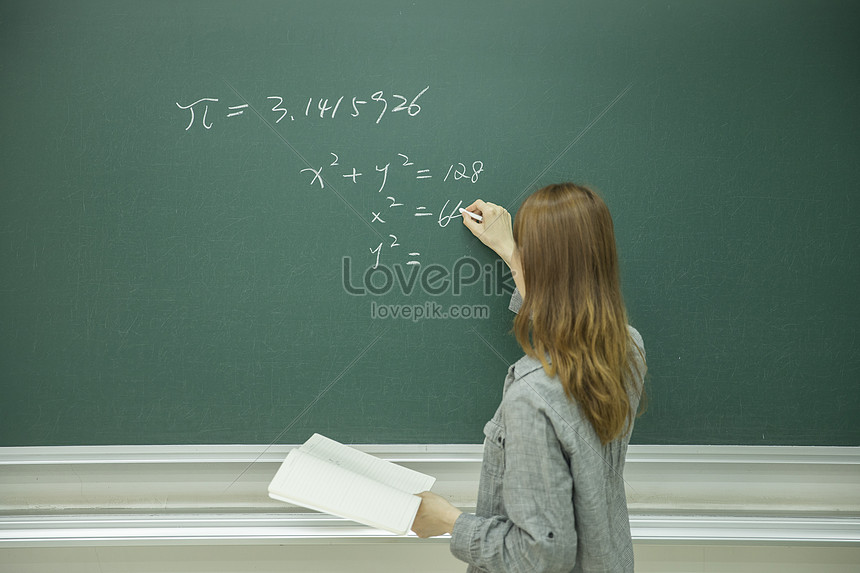 π = 3.1415926
x² + y² = 128
x² = 64
y² =
LovePik
lovepik.com